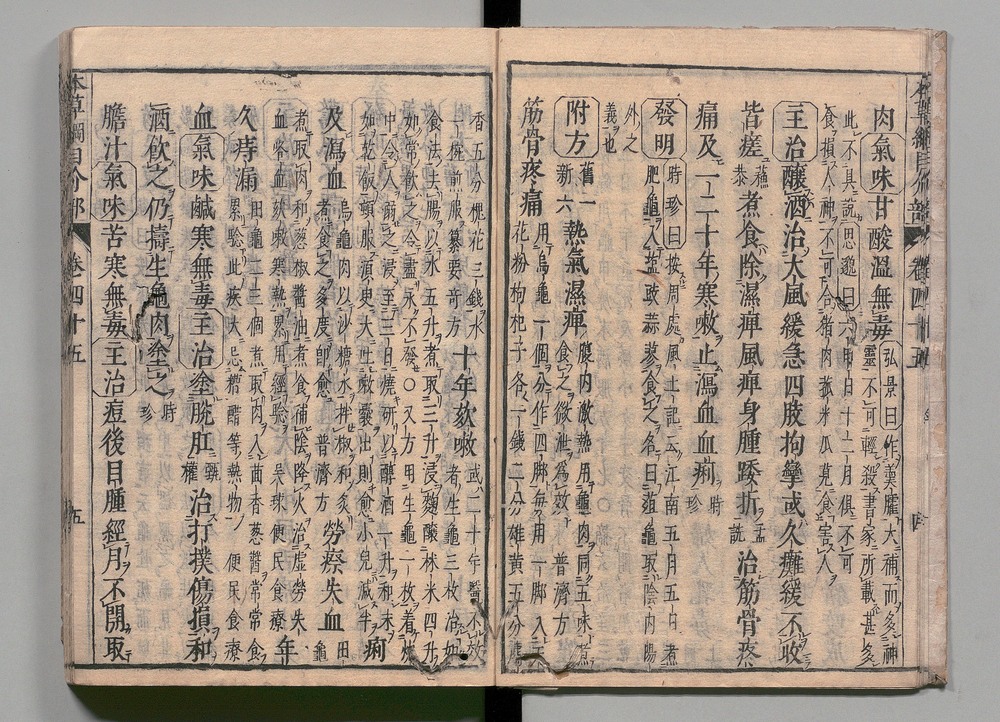 肉氣味甘酸溫無毒弘景曰作羹臛大補而多神
靈不可輕殺書家所載甚多
此不具說思邈曰六甲日十二月俱不可
食損人神不可合猪肉菰米瓜莧食害人
主治釀酒治大風緩急四肢拘攣或久癱緩不收
皆瘥蘇恭煮食除濕痺風痺身腫踒折孟詵治筋骨疼
痛及一二十年寒嗽止瀉血血痢時珍
發明時珍曰按周處風土記云江南五月五日煮
肥龜入鹽豉蒜蓼食之名曰葅龜取陰內陽
外之
義也
附方舊一
新六熱氣濕痺腹內激熱用龜肉同五味煮
食之微泄爲效普濟方
筋骨疼痛用烏龜一個分作四脚每用一脚入天
花粉枸杞子各一錢二分雄黃五分麝
香五分槐花三錢水
一椀煎服纂要奇方十年欬嗽或二十年醫不效
者生龜三枚治如
食法去腸以水五升煮取三升浸麴釀秫米四升
如常飲之令盡永不發○又方用生龜一枚着坎
中令人溺之浸至三日燒研以醇酒一升和末
如乾飯頓服須臾大吐嗽囊出則愈小兒減半痢
及瀉血烏龜肉以沙糖水拌椒和炙
煮食之多度卽愈普濟方勞瘵失血田
龜
煮取肉和葱椒醬油煮食補陰降火治虛勞失
血咯血欬嗽寒熱累用經驗吳球便民食療年
久痔漏田龜二三個煮取肉入茴香葱醬常常食
累驗此疾大忌糟醋等熱物便民食療
血氣味鹹寒無毒主治塗脫肛甄權治打撲傷損和
酒飲之仍擣生龜肉塗之時珍
膽汁氣味苦寒無毒主治痘後目腫經月不開取
本草綱目介部 卷四十五 五